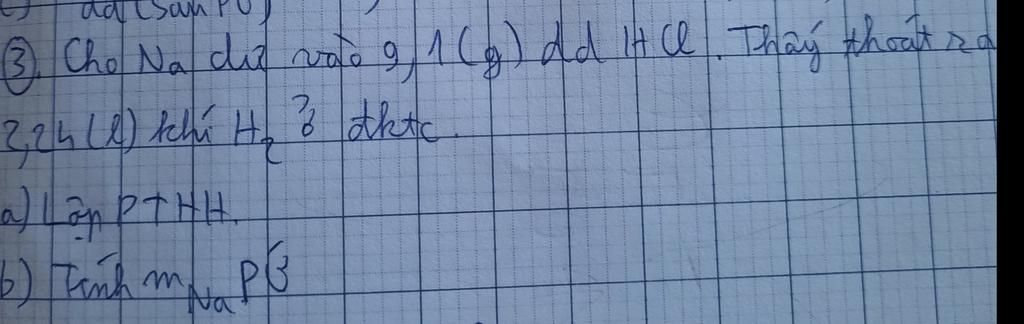 c) dd (sau PƯ)
③. Cho Na dư vào 9,1 (g) dd HCl. Thấy thoát ra
2,24 (l) khí H₂ ở đktc.
a) Lập PTHH.
b) Tính m Na PƯ